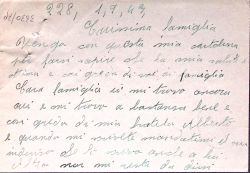 228, 1,9,43,
Carissima famiglia
Vengo con questa mia cartolina
per farvi sapere che la mia salute e
e cosi credo di voi di famiglia
Cara famiglia io mi trovo ancora
qui e mi trovo a bastanza bene e
cosi credo di mio fratello Alberto
e quando mi scrivete mandatemi il suo
indirizzo
Altro non mi resta da dirvi